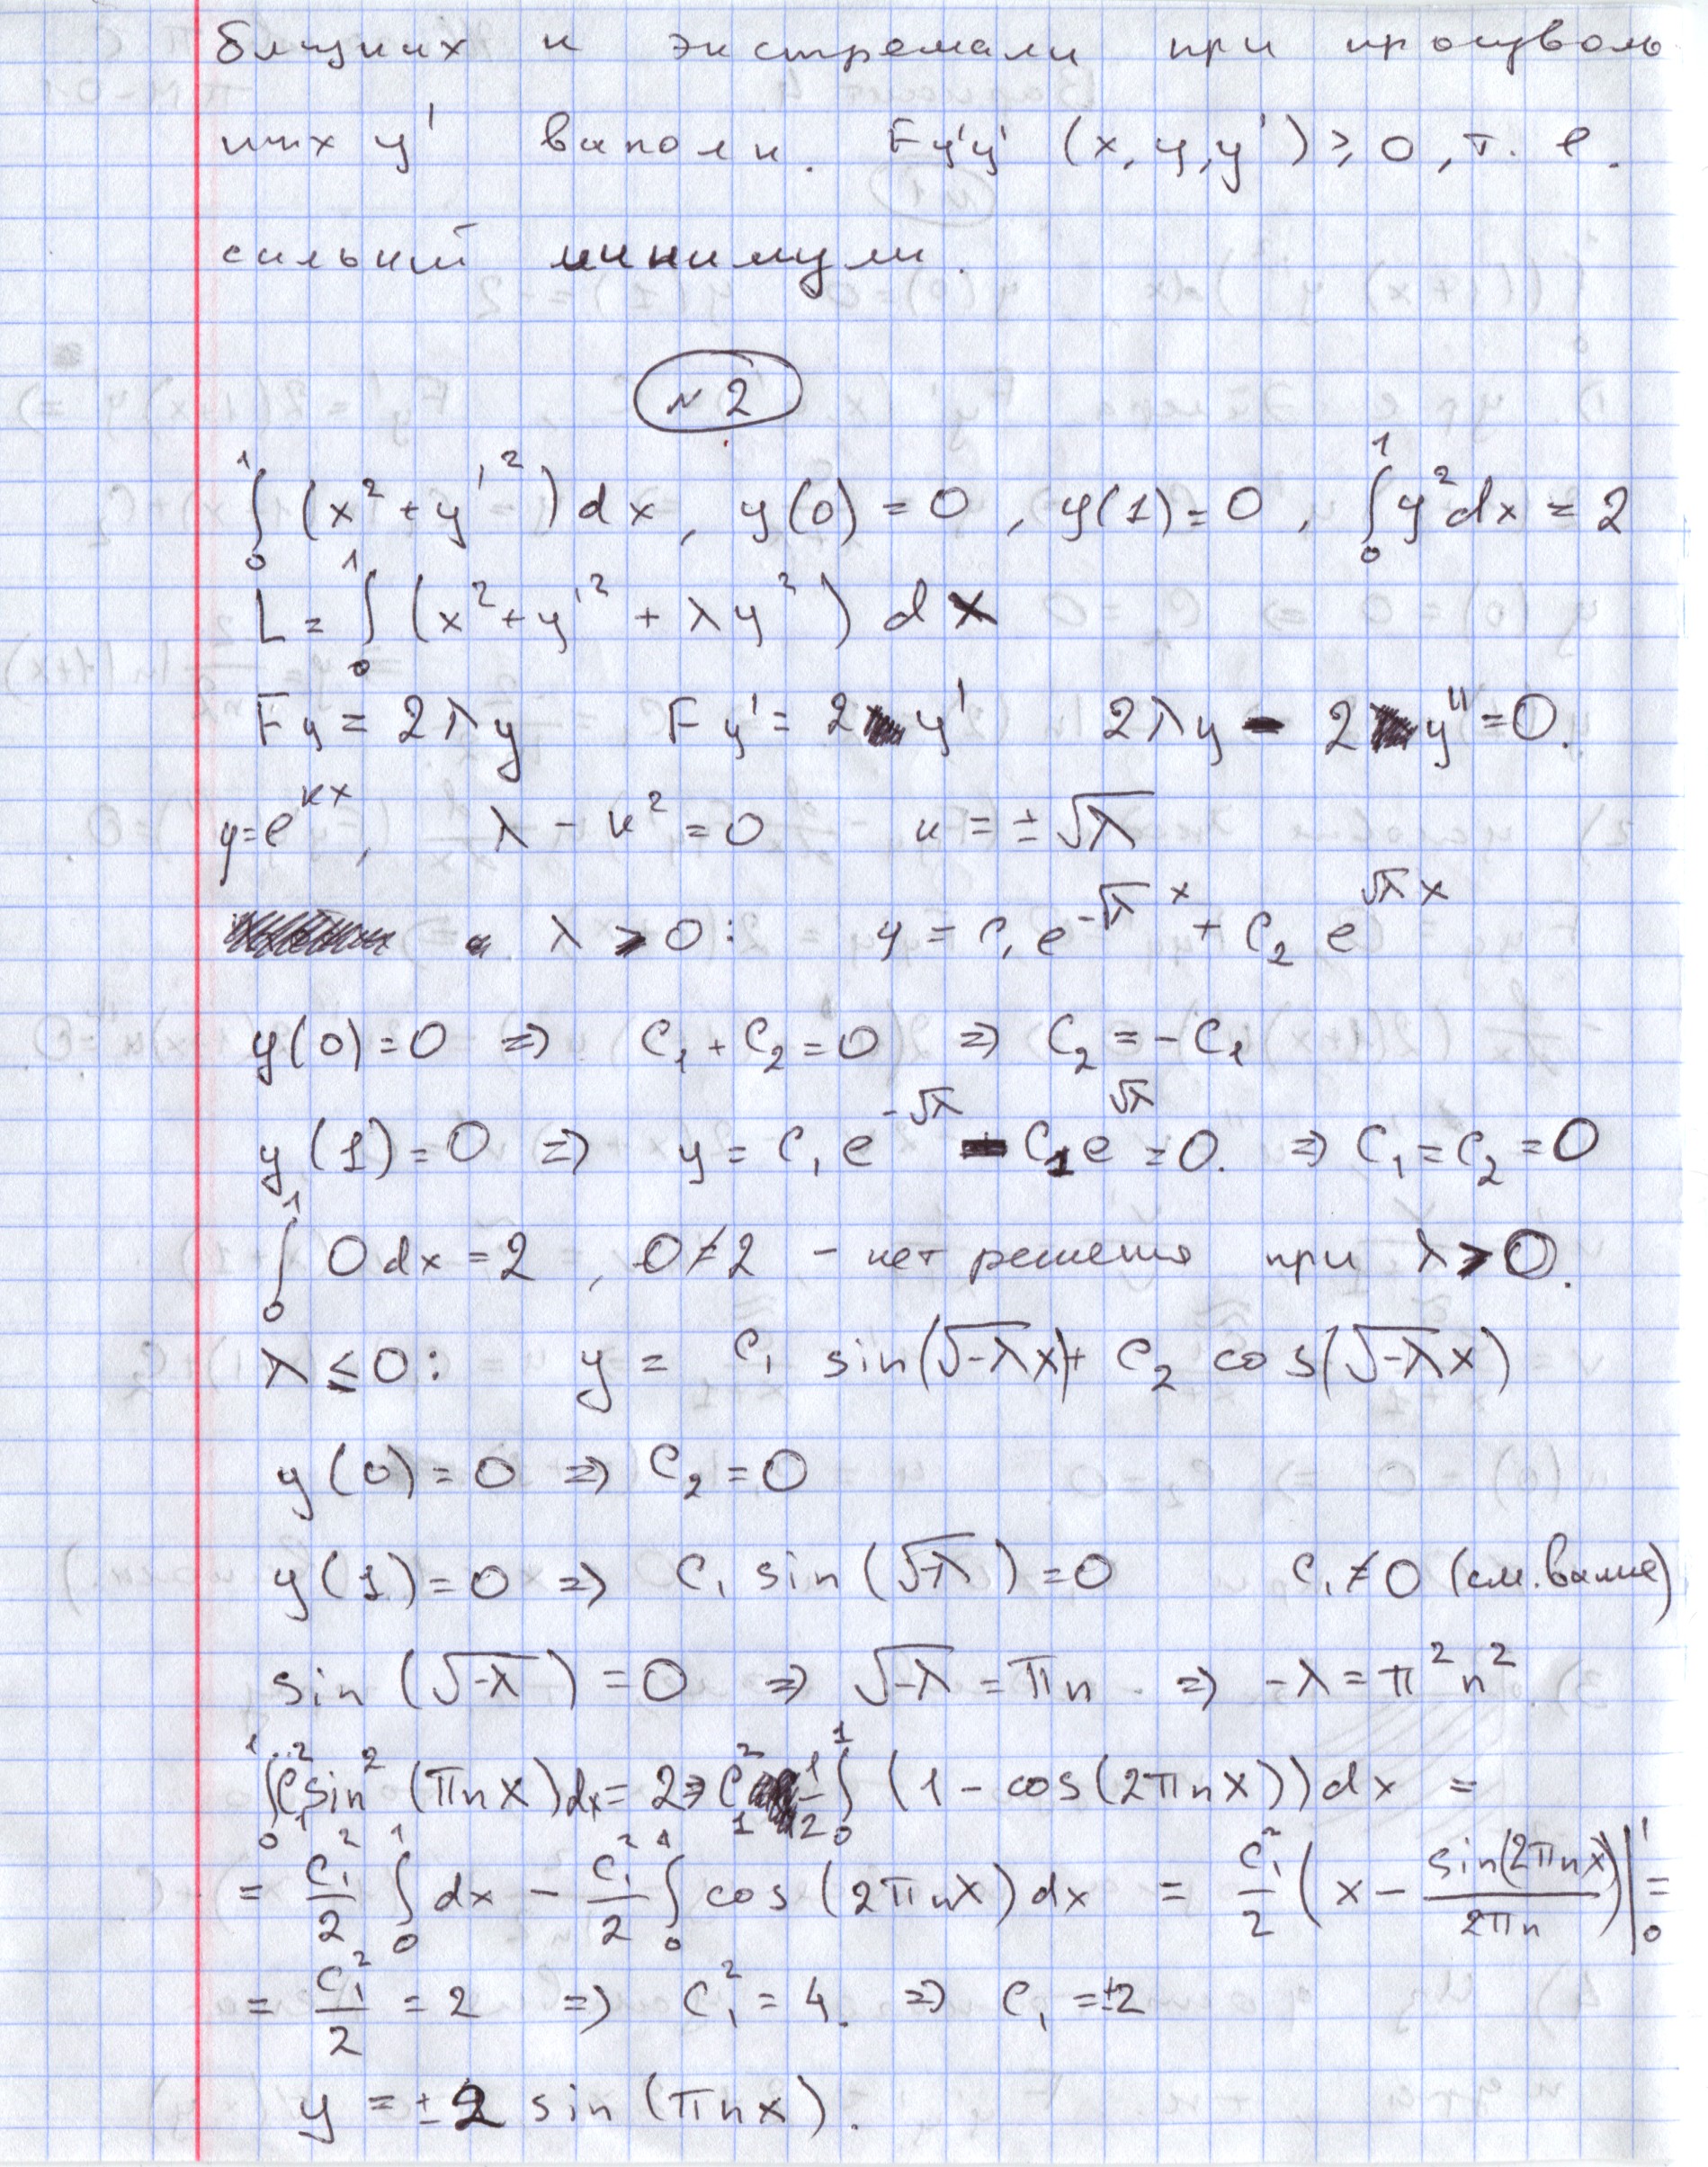 близких к экстремали при произволь
ных y' выполн. Fy'y' (x, y, y') ≥ 0, т. е.
сильный минимум.
№2
∫₀¹ (x² + y'²) dx, y(0) = 0, y(1) = 0, ∫₀¹ y² dx = 2
L = ∫₀¹ (x² + y'² + λy²) dx
Fy = 2λy Fy' = 2y' 2λy - 2y'' = 0.
y = e^{kx}, λ - k² = 0 k = ±√λ
λ > 0: y = C₁ e^{-√λ x} + C₂ e^{√λ x}
y(0) = 0 ⇒ C₁ + C₂ = 0 ⇒ C₂ = -C₁
y(1) = 0 ⇒ y = C₁ e^{-√λ} - C₁ e^{√λ} = 0. ⇒ C₁ = C₂ = 0
∫₀¹ 0 dx = 2, 0 ≠ 2 - нет решения при λ > 0.
λ ≤ 0: y = C₁ sin(√-λ x) + C₂ cos(√-λ x)
y(0) = 0 ⇒ C₂ = 0
y(1) = 0 ⇒ C₁ sin(√-λ) = 0 C₁ ≠ 0 (см. выше)
sin(√-λ) = 0 ⇒ √-λ = πn ⇒ -λ = π²n²
∫₀¹ C₁² sin²(πnx) dx = 2 ⇒ C₁² 1/2 ∫₀¹ (1 - cos(2πnx)) dx =
= C₁²/2 ∫₀¹ dx - C₁²/2 ∫₀¹ cos(2πnx) dx = C₁²/2 (x - sin(2πnx)/2πn)|₀¹ =
= C₁²/2 = 2 ⇒ C₁² = 4. ⇒ C₁ = ±2
y = ±2 sin(πnx).